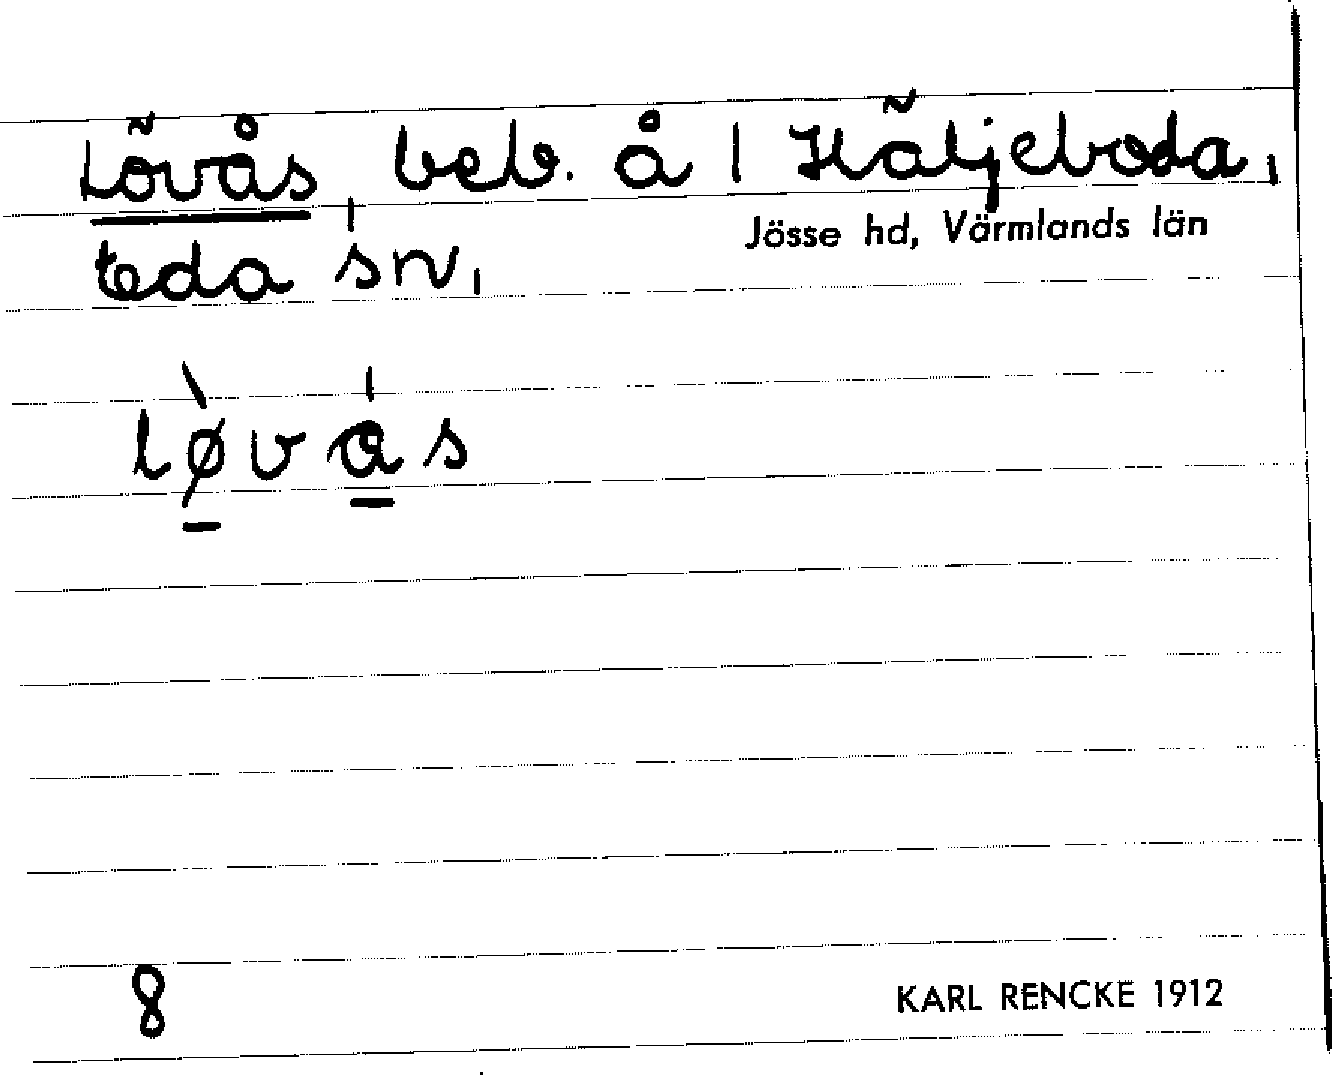 Lövås, beb. å 1 Häljeboda,
Jösse hd, Värmlands län
Eda sn,
lø̀vås
8
KARL RENCKE 1912